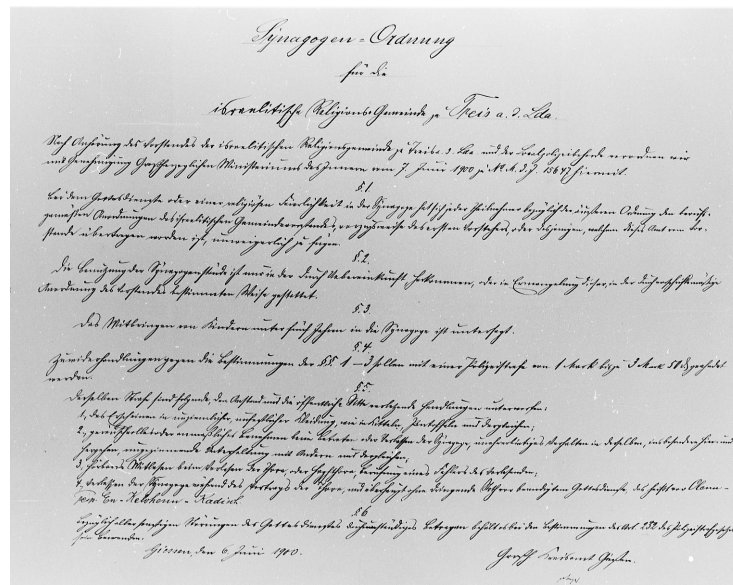 Synagogen-Ordnung
für die
israelitische Religions-Gemeinde zu Treis a. d. Lda.
Nach Anhörung des Vorstandes der israelitischen Religionsgemeinde zu Treis a. d. Lda und der Localpolizeibehörde verordnen wir
mit Genehmigung Großherzoglichen Ministeriums des Innern vom 7. Juni 1900 zu No. M. d. J. 15647 hiermit.
§ 1
Bei dem Gottesdienste oder einer religiösen Feierlichkeit in der Synagoge hat sich jeder Theilnehmer bezüglich der äußeren Ordnung den
Anordnungen des israelitischen Gemeindevorstandes, des ersten Vorstehers, oder desjenigen, welchem dieses Amt vom Vor-
stande übertragen worden ist, unweigerlich zu fügen.
§. 2.
Die Benutzung der Synagogenstände ist nur in der durch Uebereinkunft, Herkommen, oder in Ermangelung dieser, in der
Anordnung des Vorstandes bestimmten Weise gestattet.
§. 3.
Das Mitbringen von Kindern unter fünf Jahren in die Synagoge ist untersagt.
§. 4.
Zuwiderhandlungen gegen die Bestimmungen der §§. 1 – 3 sollen mit einer Polizeistrafe von 1 Mark bis zu 3 Mark geahndet
werden.
§. 5.
Derselben Strafe sind folgende, den Anstand und die öffentliche Sitte verletzende Handlungen unterworfen:
1, das Erscheinen in unziemlicher, Kleidung, wie in Kitteln, Pantoffeln und dergleichen;
2., geräuschvolles oder Benehmen beim Betreten oder Verlassen der Synagoge, Verhalten in derselben, insbesondere hin- und
hergehen, Unterhaltung mit Andern und dergleichen;
3, Mitlesen beim Verlesen der Thora, der Haphthora, eines Fehlers des Vorlesenden;
4, Verlassen der Synagoge während des Vortrags der Thora, und überhaupt ohne dringende vor beendigtem Gottesdienste,
resp. En - Kelohenu - Kadisch.
§ 6
Bezüglich Störungen des Gottesdienstes Betragen behält es bei den Bestimmungen des Art 232 des Polizeistrafgesetzes
sein Bewenden.
Giessen, den 6. Juni 1900.
Großh Kreisamt Gießen.